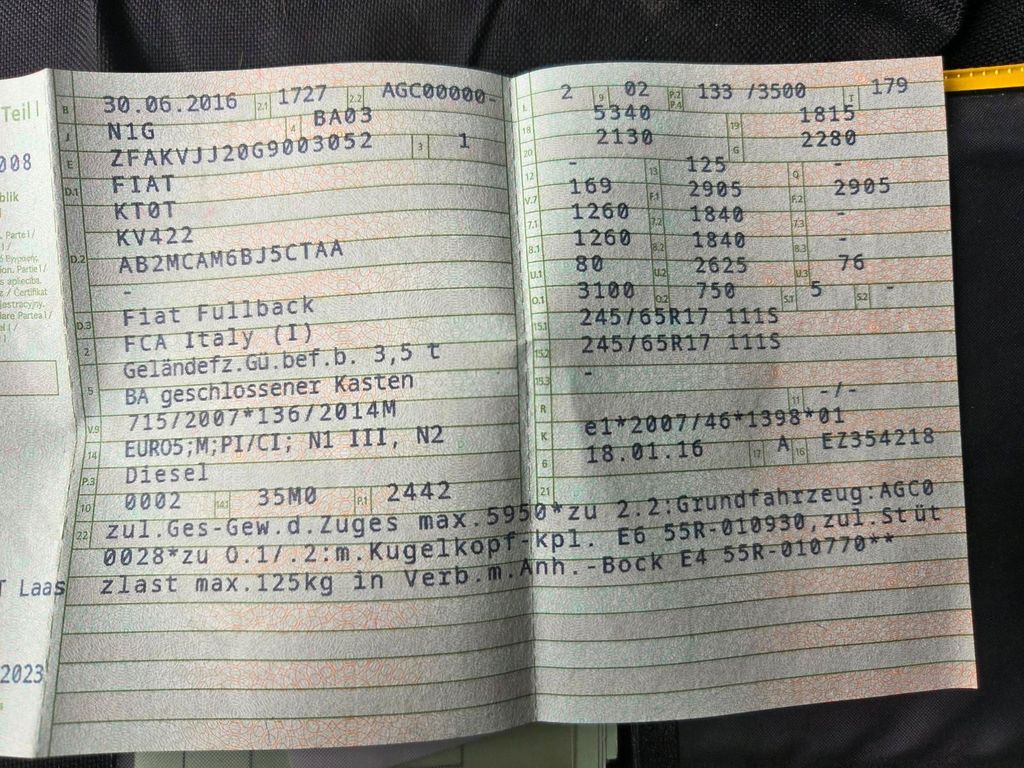 Teil I
008
blik
Parte I /
Εγγραφής
tion. Parte I /
ıs apliecība.
z / Certifikat
jestracyjny.
lare Partea I /
el I /
T Laas
2023
B 30.06.2016 2.1 1727 2.2 AGC00000-
J N1G 4 BA03
E ZFAKVJJ20G9003052 3 1
D.1 FIAT
KT0T
KV422
D.2 AB2MCAM6BJ5CTAA
-
D.3 Fiat Fullback
2 FCA Italy (I)
Geländefz.Gü.bef.b. 3,5 t
5 BA geschlossener Kasten
715/2007*136/2014M
V.9 EURO5;M;PI/CI; N1 III, N2
14
P.3 Diesel
10 0002 14.1 35M0 P.1 2442
L 2 9 02 P.2 P.4 133 /3500 T 179
18 5340 19 1815
20 2130 G 2280
12 - 13 125 Q -
V.7 169 F.1 2905 F.2 2905
7.1 1260 7.2 1840 7.3 -
8.1 1260 8.2 1840 8.3 -
U.1 80 U.2 2625 U.3 76
O.1 3100 O.2 750 S.1 5 S.2 -
15.1 245/65R17 111S
15.2 245/65R17 111S
15.3 -
R 11 -/-
K e1*2007/46*1398*01
6 18.01.16 17 A 16 EZ354218
21
22 zul.Ges-Gew.d.Zuges max.5950*zu 2.2:Grundfahrzeug:AGC0
0028*zu O.1/.2:m.Kugelkopf-kpl. E6 55R-010930,zul.Stüt
zlast max.125kg in Verb.m.Anh.-Bock E4 55R-010770**